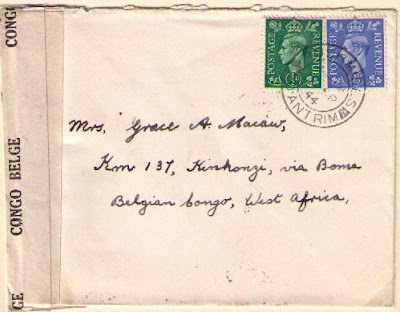 CONGO
CONGO BELGE
GE
POSTAGE REVENUE
POSTAGE REVENUE
44
ANTRIM
Mrs. Grace A. Macaw,
Km 137, Kinkonzi, via Boma
Belgian Congo, West Africa,